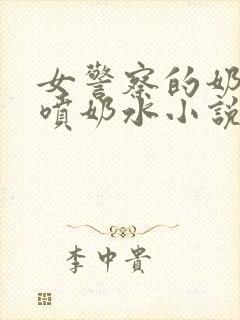 女警察的奶
喷奶水小説
李中貴